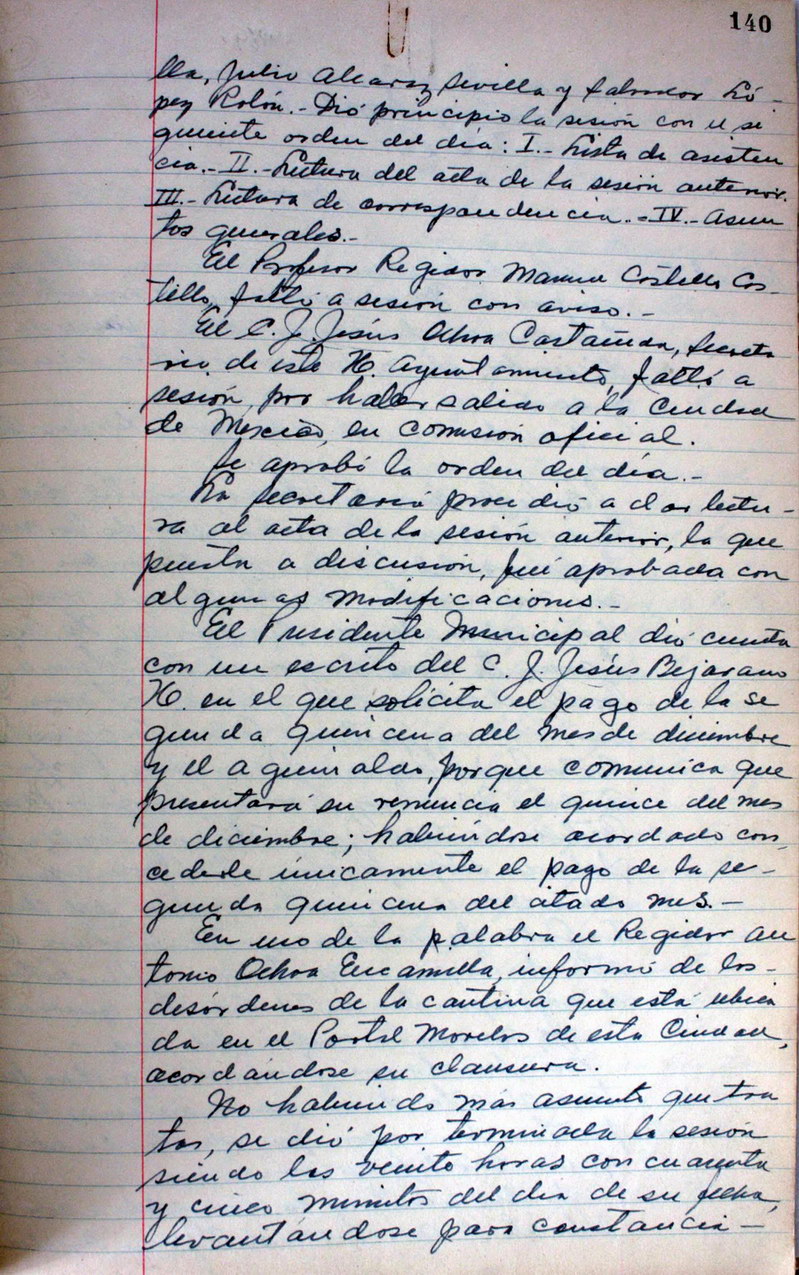 140
lla, Julio Alcaraz Sevilla y Salvador Ló-
pez Rolón.- Dió principio la sesión con el si
guiente orden del día: I.- Lista de asisten
cia.- II.- Lectura del acta de la sesión anterior.
III.- Lectura de correspondencia.- IV.- Asun
tos generales.-
El Profesor Regidor Manuel Costello Cos-
tillo, faltó a sesión con aviso.-
El C. J. Jesús Ochoa Castañeda, Secreta
rio de este H. Ayuntamiento, faltó a
sesión, por haber salido a la Ciudad
de México, en comisión oficial.
Se aprobó la orden del día.-
La Secretaría procedió a dar lectu-
ra al acta de la sesión anterior, la que
puesta a discusión, fué aprobada con
algunas modificaciones.-
El Presidente Municipal dió cuenta
con un escrito del C. J. Jesús Bejarano
H. en el que solicita el pago de la se
gunda quincena del mes de diciembre
y el aguinaldo, porque comunica que
presentará su renuncia el quince del mes
de diciembre; habiéndose acordado con
cederle únicamente el pago de la se-
gunda quincena del citado mes.-
En uso de la palabra el Regidor An
tonio Ochoa Encamilla, informó de los-
desórdenes de la cantina que está ubica
da en el Portal Morelos de esta Ciudad,
acordándose su clausura.
No habiendo más asuntos que tra
tar, se dió por terminada la sesión
siendo las veinte horas con cuarenta
y cinco minutos del día de su fecha,
levantándose para constancia-